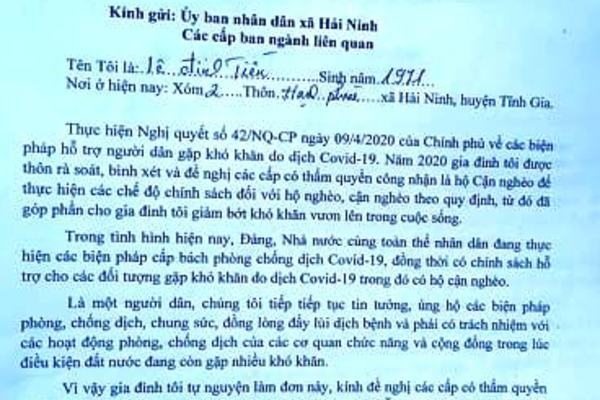 Kính gửi: Ủy ban nhân dân xã Hải Ninh
Các cấp ban ngành liên quan
Tên Tôi là: Lê Đình Tiên Sinh năm 1971
Nơi ở hiện nay: Xóm 2 Thôn xã Hải Ninh, huyện Tĩnh Gia.
Thực hiện Nghị quyết số 42/NQ-CP ngày 09/4/2020 của Chính phủ về các biện
pháp hỗ trợ người dân gặp khó khăn do dịch Covid-19. Năm 2020 gia đình tôi được
thôn rà soát, bình xét và đề nghị các cấp có thẩm quyền công nhận là hộ Cận nghèo để
thực hiện các chế độ chính sách đối với hộ nghèo, cận nghèo theo quy định, từ đó đã
góp phần cho gia đình tôi giảm bớt khó khăn vươn lên trong cuộc sống.
Trong tình hình hiện nay, Đảng, Nhà nước cùng toàn thể nhân dân đang thực
hiện các biện pháp cấp bách phòng chống dịch Covid-19, đồng thời có chính sách hỗ
trợ cho các đối tượng gặp khó khăn do dịch Covid-19 trong đó có hộ cận nghèo.
Là một người dân, chúng tôi tiếp tiếp tục tin tưởng, ủng hộ các biện pháp
phòng, chống dịch, chung sức, đồng lòng đẩy lùi dịch bệnh và phải có trách nhiệm với
các hoạt động phòng, chống dịch của các cơ quan chức năng và cộng đồng trong lúc
điều kiện đất nước đang còn gặp nhiều khó khăn.
Vì vậy gia đình tôi tự nguyện làm đơn này, kính đề nghị các cấp có thẩm quyền